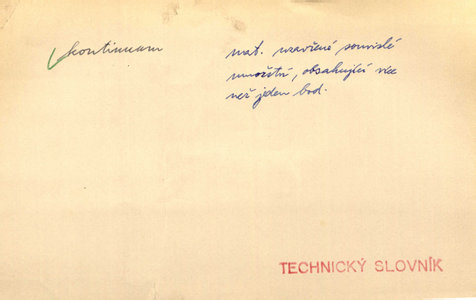 kontinuum
mat. uzavřené souvislé
množství, obsahující více
než jeden bod.
TECHNICKÝ SLOVNÍK